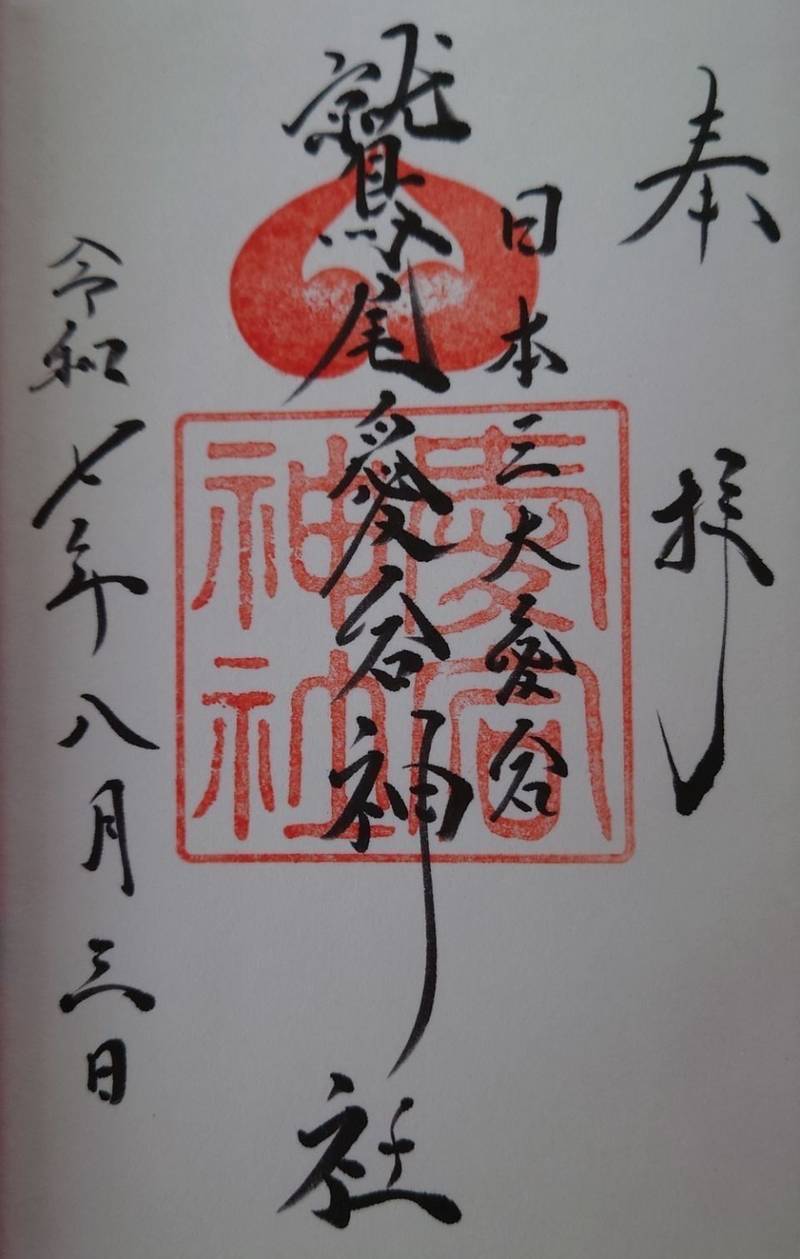 奉拝
日本三大愛宕
鷲尾愛宕神社
令和七年八月三日
愛宕
神社